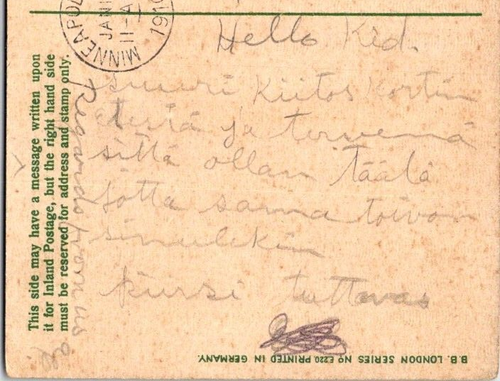 MINNEAPOL
JAN 1
11-A
1910
Hello Kid.
suuri Kiitos Kortin
teiä ja terveenä
sittä ollan täälä
Jotta sama toivon
sinulekin
tuttavas
Regards from us all
This side may have a message written upon
it for Inland Postage, but the right hand side
must be reserved for address and stamp only.
B.B. LONDON SERIES No E220 PRINTED IN GERMANY.